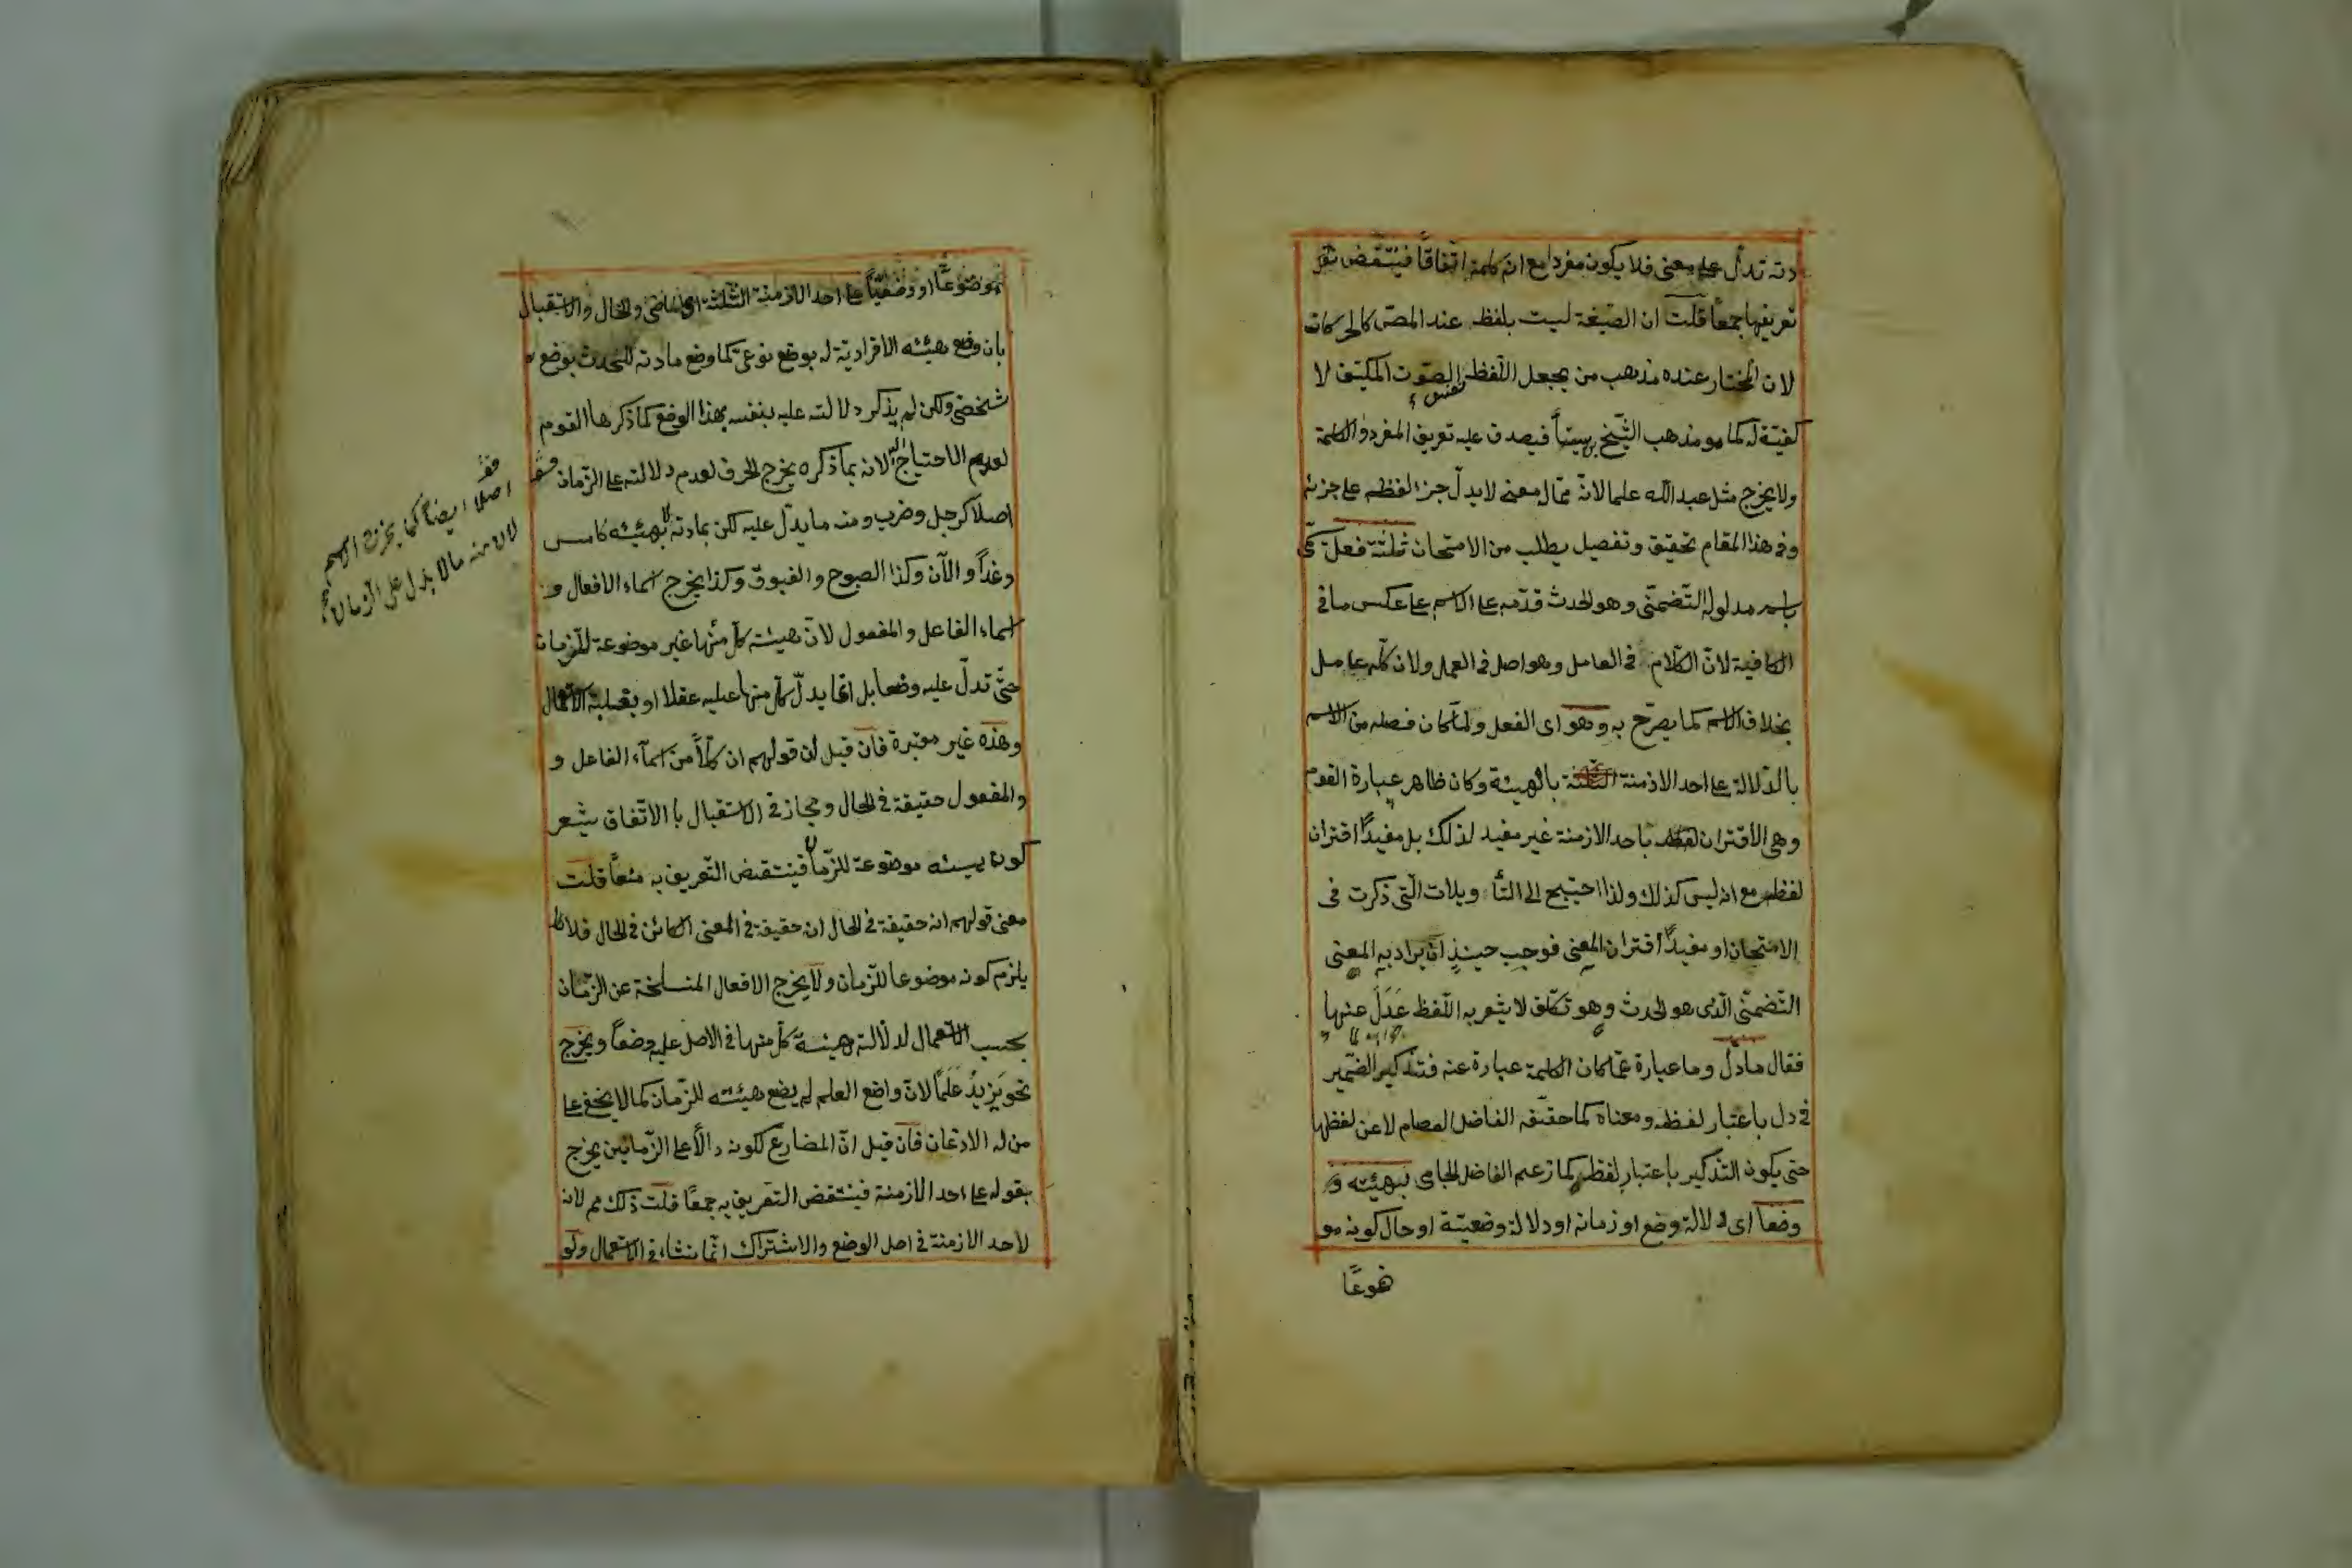 دته تدل على معنى فلا يكون مفردا مع انه كلمة اتفاقًا فينتقض تعر
تعريفها جمعًا قلت ان الصيغة ليست بلفظ عند المص كالحركات
لان المختار عنده مذهب من يجعل اللفظ الصوت المكيّف لا
كفيّة له كما هو مذهب الشيخ فيصدق عليه تعريف المفرد والكلمة
ولا يخرج مثل عبد الله علما لانه مما له معنى لا يدلّ جزء لفظه على جزئه
وفى هذا المقام تحقيق وتفصيل يطلب من الامتحان ثلثة فعل
باسم مدلوله التّضمنّى وهو الحدث قدّمه على الاسم على عكس ما فى
الكافية لانّ الكلام فى العامل وهو اصل فى العمل ولان كلّه عامل
بخلاف الاسم كما يصرّح به وهو اى الفعل ولما كان فصله من الاسم
بالدّلالة على احد الازمنة الثلثة بالهيئة وكان ظاهر عبارة القوم
وهى الاقتران باحد الازمنة غير مفيد لذلك بل مفيدًا اقتران
لفظه مع انه ليس كذلك ولذا احتيج الى التأ ويلات الّتى ذكرت فى
الامتحان او مفيدًا اقتران المعنى فوجب حينئذٍ ان يراد به المعنى
التّضمنّى الّذى هو الحدث وهو تكلّف لا يشعر به اللّفظ عَدَلَ عنها
فقال ما دلّ وما عبارة عما كان الكلمة عبارة عنه فتذكير الضّمير
فى دل باعتبار لفظه ومعناه كما حققه الفاضل العصام لا عن لفظها
حتى يكون التذكير باعتبار لفظه كما زعم الفاضل الجامى بهيئته و
وضعًا اى دلالة وضع او زمانه او دلالة وضعيّة او حال كونه مو
ضوعًا
موضوعًا او وضعيّاً على احد الازمنة الثّلثة اى الماضى والحال والاستقبال
بان وضع هيئته الافراديّة له بوضع نوعىّ كما وضع مادته للحدث بوضع
شخصىّ ولكن لم يذكر دلالته عليه بنفسه بهذا الوضع كما ذكرها القوم
لعدم الاحتياج اليه لانه بما ذكره يخرج الحرف لعدم دلالته على الزّمان
اصلا كرجل وضرب ومنه ما يدلّ عليه لكن بمادته لا بهيئته كامس
وغداً والآن وكذا الصبوح والغبوق وكذا يخرج اسماء الافعال و
اسماء الفاعل والمفعول لانّ هيئته كلّ منها غير موضوعة للزمان
حتّى تدلّ عليه وضعا بل انما يدلّ كلّ منها عليه عقلا او بغلبة الاستعمال
وهذه غير معتبرة فان قيل ان قولهم ان كلاًّ من اسماء الفاعل و
والمفعول حقيقة فى الحال ومجاز فى الاستقبال بالاتّفاق يشعر
كون هيئته موضوعة للزّمان فينتقض التّعريف به منعًا قلت
معنى قولهم انه حقيقة فى الحال انه حقيقة فى المعنى الكائن فى الحال فلا
يلزم كونه موضوعا للزّمان ولا يخرج الافعال المنسلخة عن الزّمان
بحسب الاستعمال لدلالة هيئة كلّ منها فى الاصل عليه وضعًا ويخرج
نحو يَزيدُ عَلَمًا لانّ واضع العلم لم يضع هيئته للزّمان كما لا يخفى على
من له الاذعان فان قيل انّ المضارع لكونه دالاًّ على الزّمانين يخرج
بقوله على احد الازمنة فينتقض التعريف به جمعًا قلت ذلك مم لانه
لاحد الازمنة فى اصل الوضع والاشتراك انّما نشاء فى الاستعمال ولو
اصلا ايضا كما يخرج الاسم
لان منه ما لا يدل على الزمان